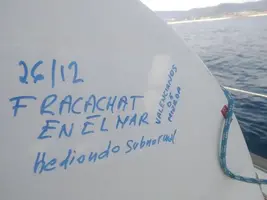 26/12
FRACACHAT
EN EL MAR
Hediondo Submarino
VALENCIANOS
DE